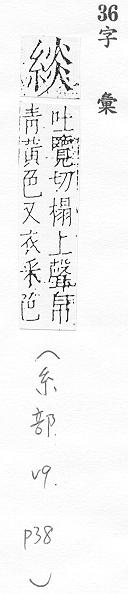 36字彙
緂
吐覽切榻上聲帛
青黃色又衣采色
(糸部 V9. P38)